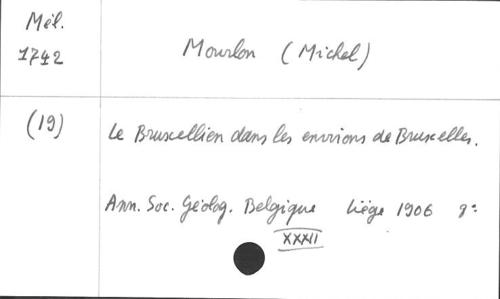 Mél.
1742
Mourlon (Michel)
(19)
Le Bruxellien dans les environs de Bruxelles.
Ann. Soc. Géolog. Belgique Liège 1906 8°
XXXII